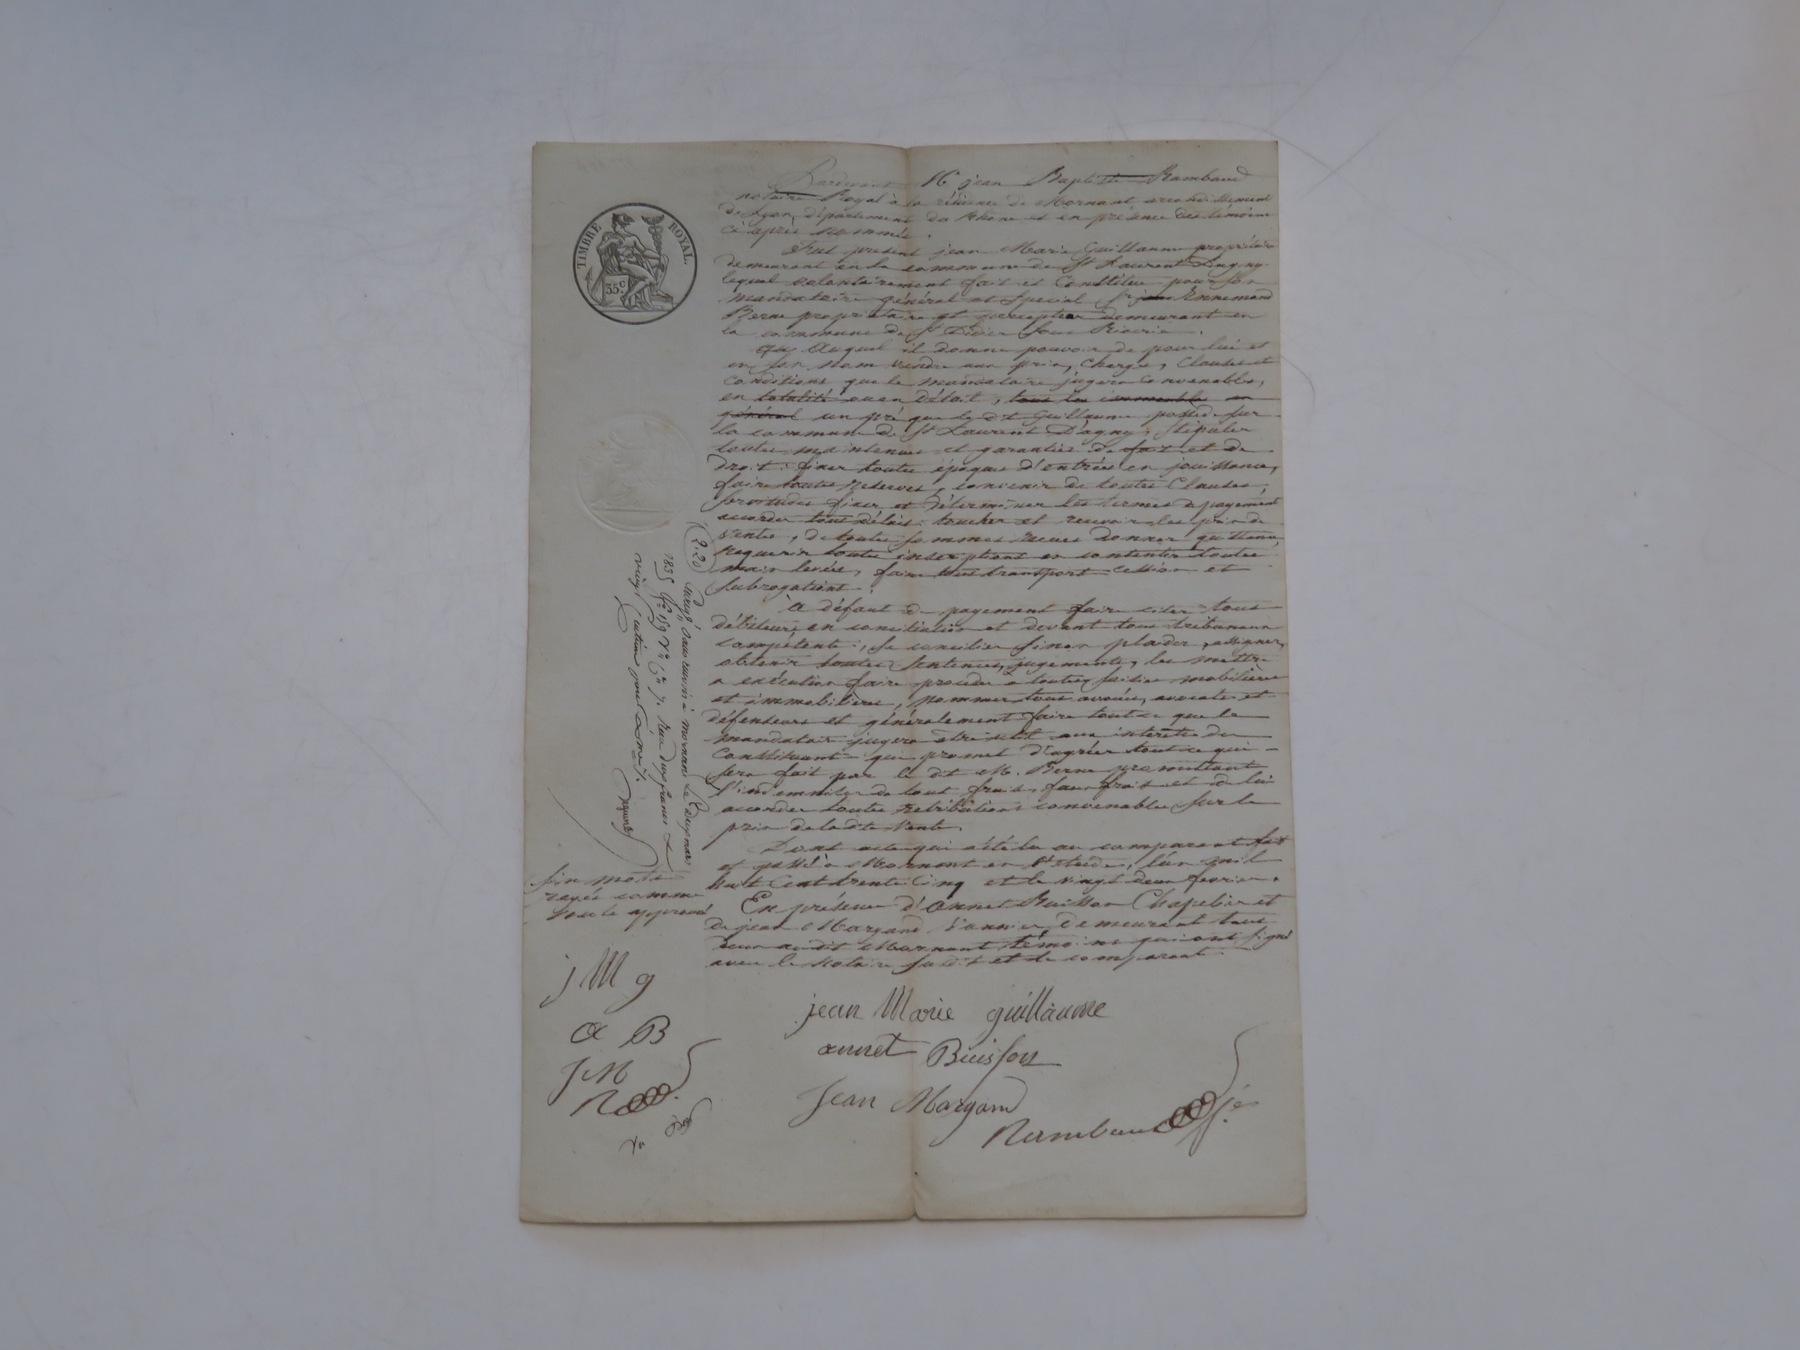 Pardevant Me jean Baptiste Rambaud
notaire Royal à la résidence de Mornant arrondissement
de Lyon, département du Rhône et en présence des témoins
ci après nommés.
Fut présent jean Marie Guillaume propriétaire
demeurant en la commune de St Laurent Dagny
lequel volontairement fait et Constitue pour son
mandataire général et Spécial Sr Ennemond
Berne propriétaire et percepteur demeurant en
la commune de St Didier sous Riverie.
Auquel il donne pouvoir de pour lui et
en son nom vendre aux prix, charges, Clauses et
conditions que le mandataire jugera convenables,
en totalité ou en Détail, tous les immeubles en
général un pré que le dt Guillaume possède sur
la commune de St Laurent D'agny, Stipuler
toutes maintenues et garanties de fait et de
droit: fixer toutes époques d'entrées en jouissance,
faire toutes réserves, convenir de toutes Clauses,
servitudes fixer et déterminer les termes de payement
accorder tous délais: toucher et recevoir les prix de
vente, de toutes sommes reçues donner quittance,
Requérir toutes inscriptions en consentir toutes
main levées, faire tous transport cession et
subrogations.
À défaut de payement faire citer tous
débiteurs en conciliation et devant tous tribunaux
compétents, se concilier sinon plaider, assigner,
obtenir toutes Sentences, jugements, les mettre
a exécution faire procéder à toutes saisies mobilières
et immobilières, nommer tous avoués, avocats et
défenseurs et généralement faire tout ce que le
mandataire jugera être utile aux intérêts du
Constituant qui promet d'agréer tout ce qui
sera fait par le dt M. Berne promettant
l'indemniser de tout frais, faux frais et de lui
accorder toutes rétributions convenables sur le
prix de la dte vente.
Dont acte qui a été lu au comparant fait
et passé à Mornant en l'étude, l'an mil
huit Cent trente Cinq et le vingt deux février.
En présence d'annet Buisson Chapelier et
de jean Margand Vannier, demeurant tous
deux audit Mornant témoins qui ont signé
avec le Notaire susdit et le comparant.
TIMBRE ROYAL
35c
2.20
Enregistré à Mornant Le Deux mars
1835 fo 159 Vo Co 7. Reçu deux francs et
vingt centimes pour décime
Six mots
rayés comme
nuls approuvé
jMg
aB
JM
R
jean Marie guillaume
annet Buisson
Jean Margand
Rambaud